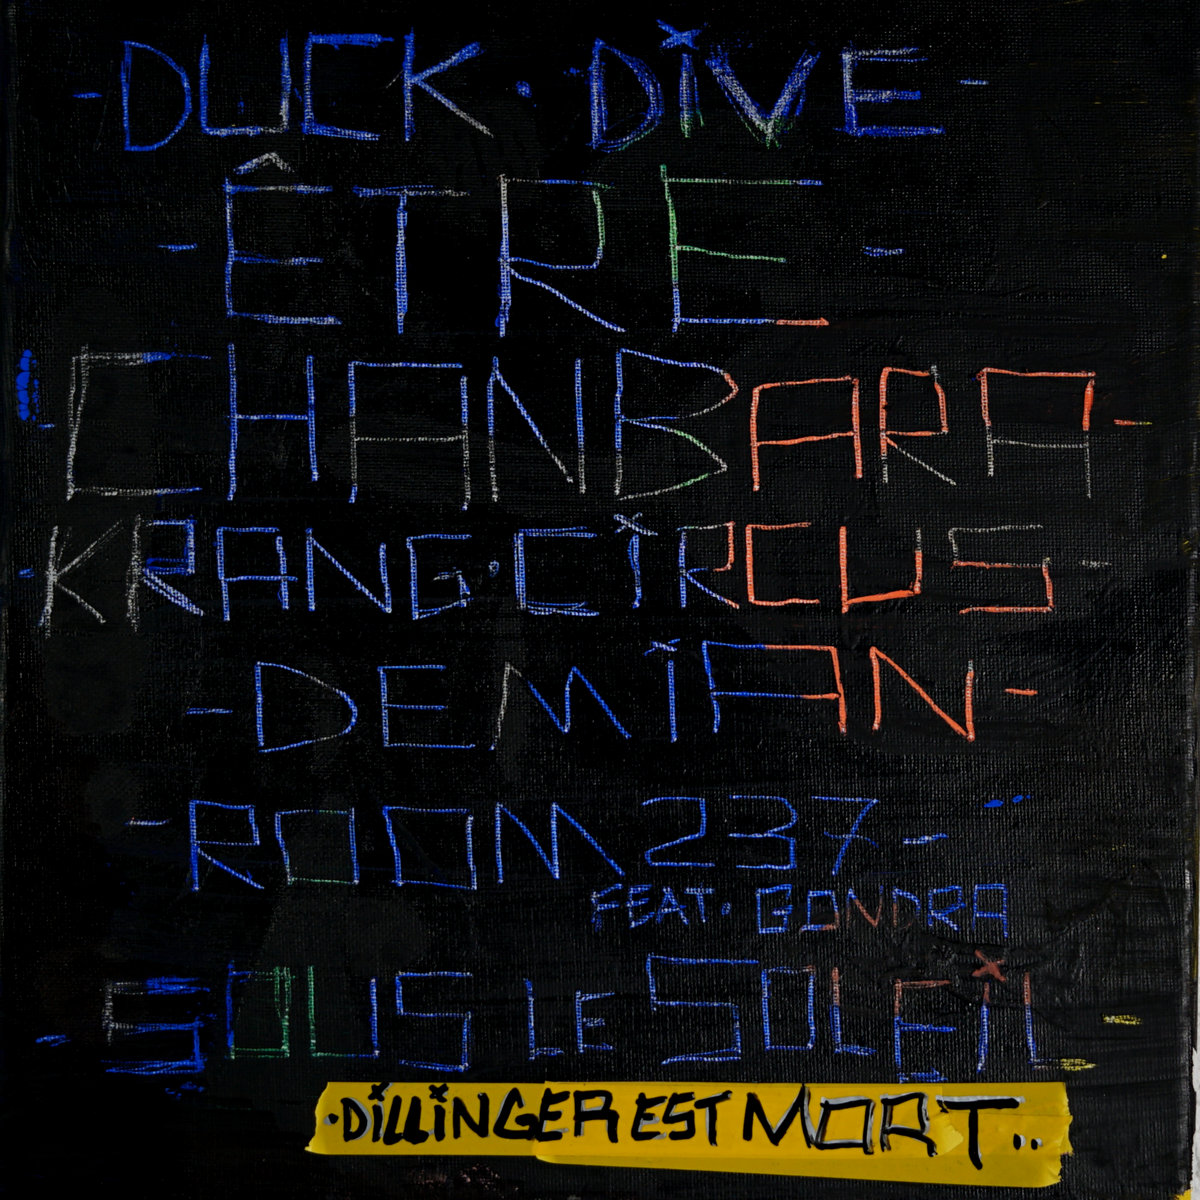 - DUCK · DiVE -
- ÊTRE -
- CHANBARA -
- KRANG · CiRCUS -
- DEMiAN -
- ROOM 237 -
FEAT. GONDRA
- SOUS LE SOLEiL -
· DiLLiNGER EST MORT..